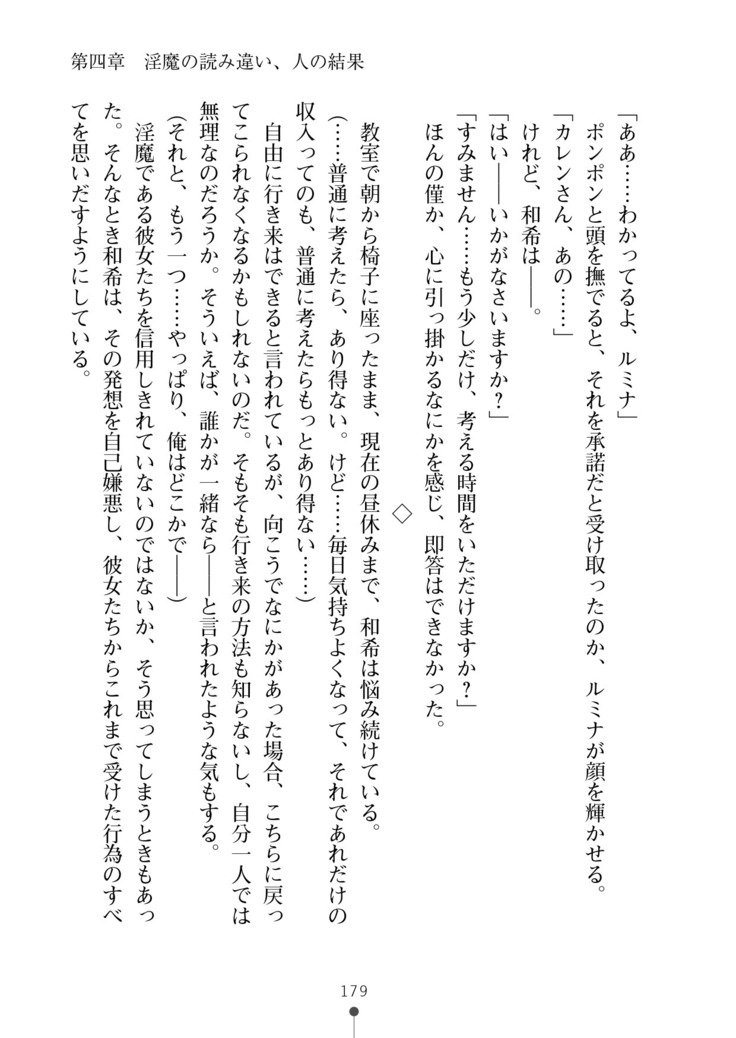 第四章　淫魔の読み違い、人の結果
「ああ……わかってるよ、ルミナ」
　ポンポンと頭を撫でると、それを承諾だと受け取ったのか、ルミナが顔を輝かせる。
「カレンさん、あの……」
　けれど、和希は――。
「はい――いかがなさいますか？」
「すみません……もう少しだけ、考える時間をいただけますか？」
　ほんの僅か、心に引っ掛かるなにかを感じ、即答はできなかった。
◇
　教室で朝から椅子に座ったまま、現在の昼休みまで、和希は悩み続けている。
（……普通に考えたら、あり得ない。けど……毎日気持ちよくなって、それであれだけの
収入ってのも、普通に考えたらもっとあり得ない……）
　自由に行き来はできると言われているが、向こうでなにかがあった場合、こちらに戻っ
てこられなくなるかもしれないのだ。そもそも行き来の方法も知らないし、自分一人では
無理なのだろうか。そういえば、誰かが一緒なら――と言われたような気もする。
（それと、もう一つ……やっぱり、俺はどこかで――）
　淫魔である彼女たちを信用しきれていないのではないか、そう思ってしまうときもあっ
た。そんなとき和希は、その発想を自己嫌悪し、彼女たちからこれまで受けた行為のすべ
てを思いだすようにしている。
179